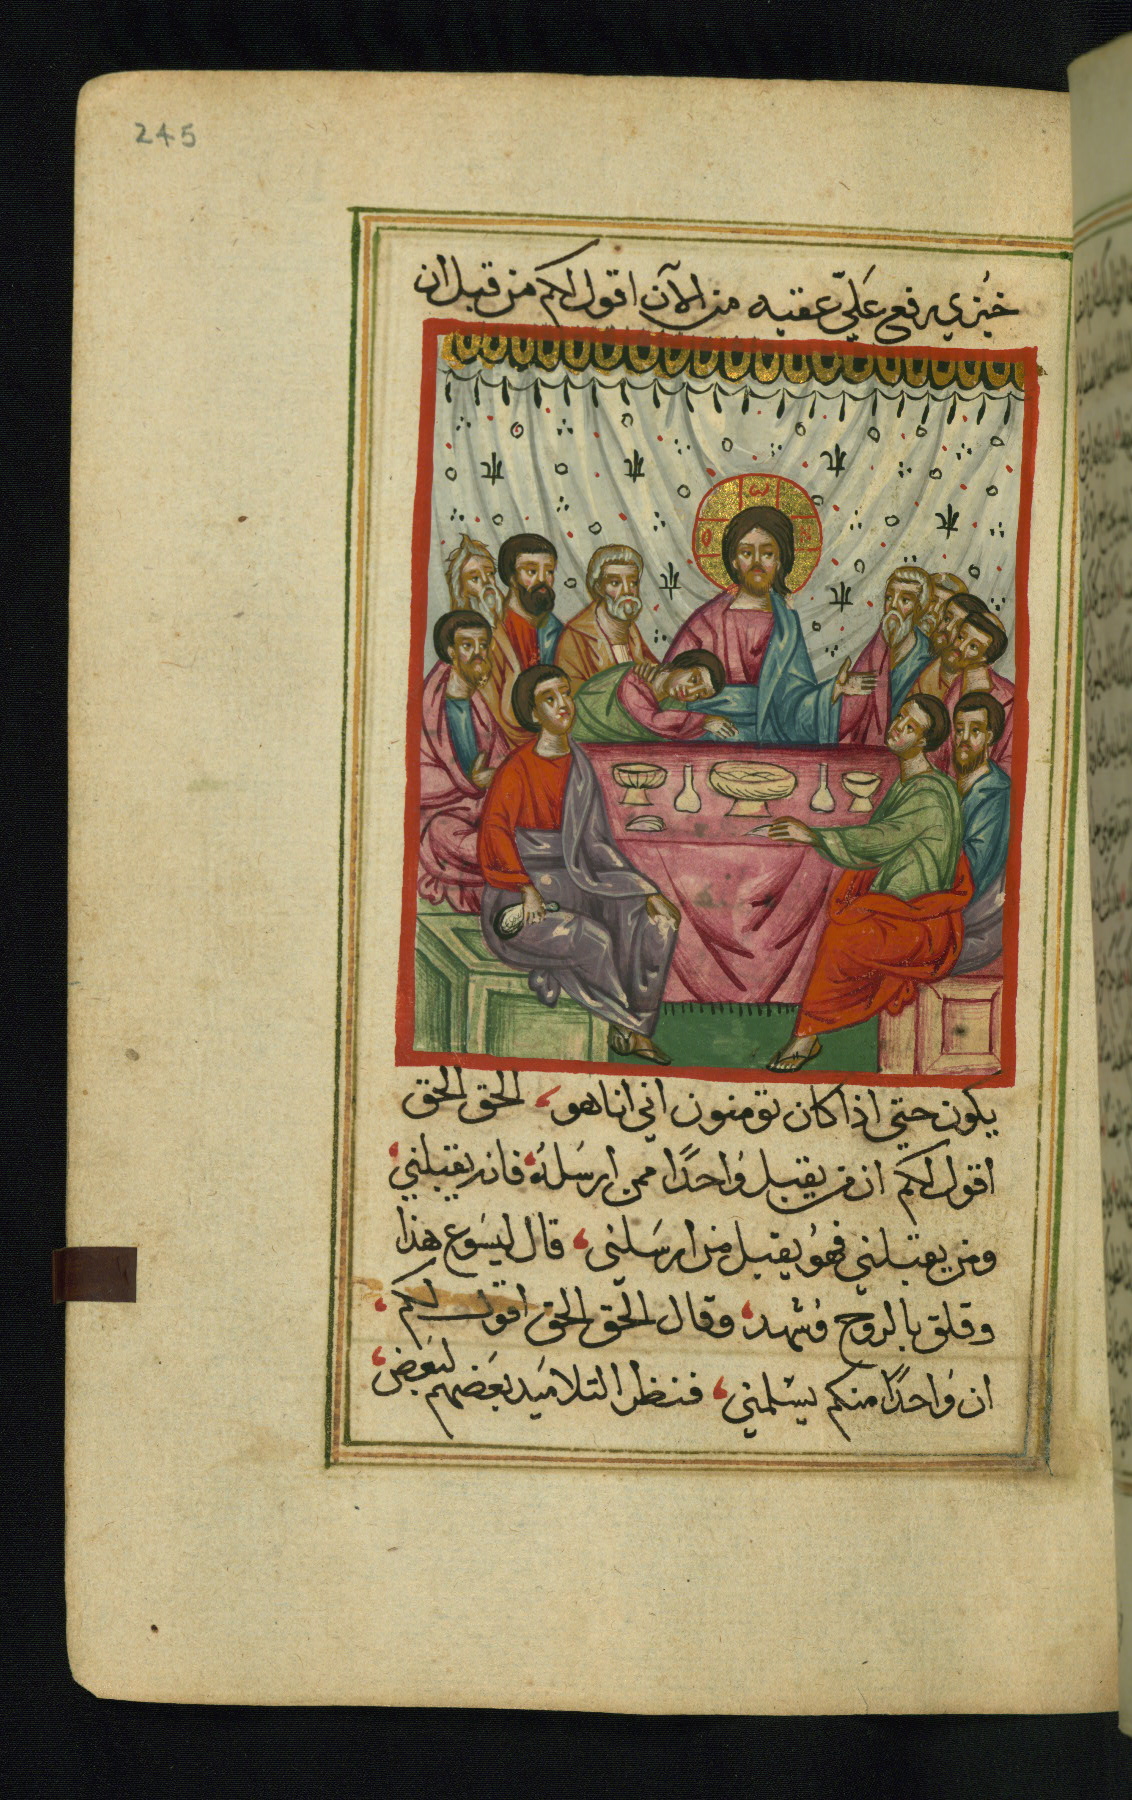 245
خبُزي يرفع عَليّ عقبه من الآن اقول لكم من قبل ان
ο ω Ν
يكون حتي اذا كان تومنون اني انا هو، الحق الحق
اقول لكم ان من يقبل وُاحدًا ممن ارسَلهُ، فانه يقبلني،
ومن يقبلني فهوُ يقبل من ارسَلني، قال ليسَوع هذا
وقلق بالروح وُشهد، وقال الحق الحق اقول لكم،
ان وُاحدًا منكم يسَلمني، فنظر التلاميَد بعَضهم لبعَض،